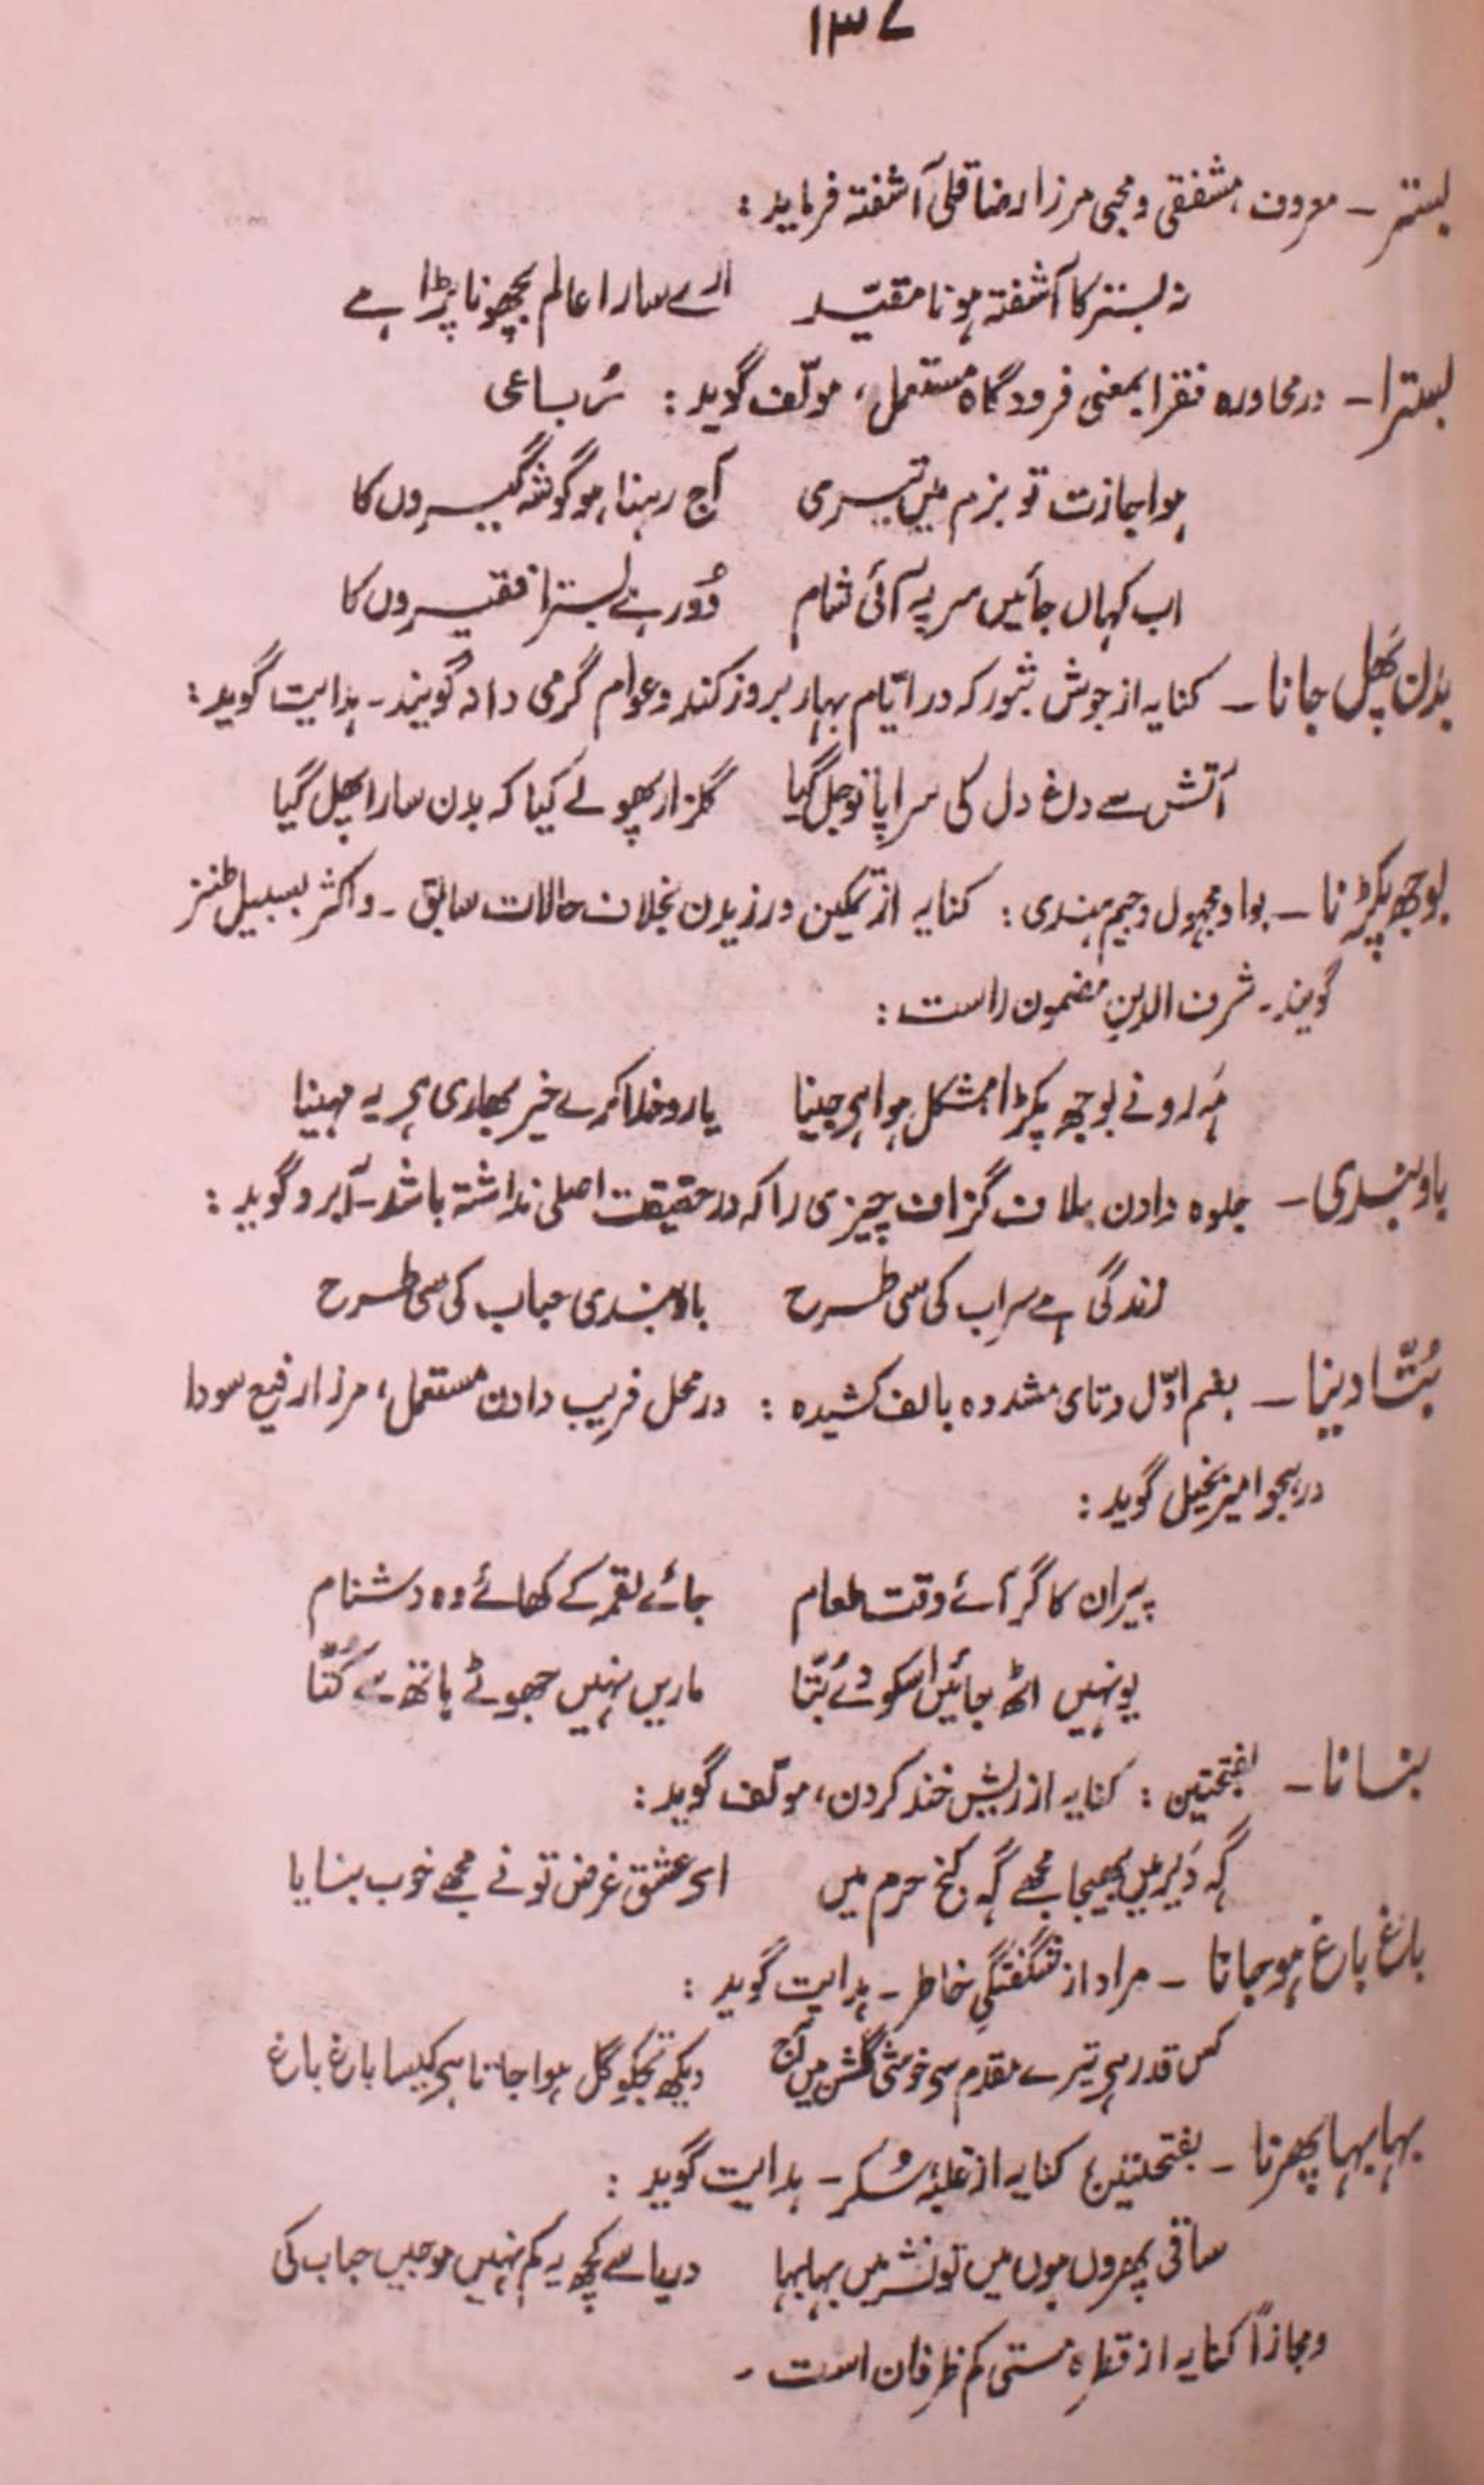 ۱۳۷
بستر ـ معروف، مشفقی و محبی مرزا رضا قلی آشفتہ فرماید :
نہ بستر کا آشفتہ ہونا مقیّد    ارے سارا عالم بچھونا پڑا ہے
بسترا ـ در محاورہ فقرا بمعنی فرودگاہ مستعمل، مولّف گوید : رُباعی
ہو اجازت تو بزم میں تیری    آج رہنا ہو گوشہ گیروں کا
اب کہاں جائیں سر پہ آئی شام    دُور ہے بسترا فقیروں کا
بدن پَھل جانا ـ کنایہ از جوش بثور کہ در ایّام بہار بروز کند و عوام گرمی دانہ گویند ـ ہدایت گوید :
آتش سے داغ دل کی سراپا تو جل گیا    گلزار پھولے کیا کہ بدن سارا پھل گیا
بوجھ پکڑنا ـ بواو مجہول و جیم ہندی : کنایہ از تمکین ورزیدن بخلاف حالات سابق ـ و اکثر بسبیل طنز
گویند ـ شرف الدین مضمون راست :
مَہ رو نے بوجھ پکڑا مشکل ہوا ہی جینا    یارو خدا کرے خیر بھاری ہی یہ مہینا
باوبندی ـ جلوہ دادن بلاف گزاف چیزی را کہ در حقیقت اصلی نداشتہ باشد ـ آبرو گوید :
زندگی ہے سراب کی سی طرح    باوبندی حباب کی سی طرح
بُتّا دینا ـ بضم اوّل و تای مشددہ بالف کشیدہ : در محل فریب دادن مستعمل، مرزا رفیع سودا
در ہجو امیر بخیل گوید :
پیر ان کا گر آئے وقت طعام    جائے لقمہ کے کھائے وہ دشنام
یونہیں اٹھ جائیں اسکو دے بُتّا    ماریں نہیں جھوٹے ہاتھ سے کُتّا
بنانا ـ بفتحتین : کنایہ از ریش خند کردن، مولّف گوید :
گہ دَیر میں بھیجا مجھے گہ کنج حرم میں    ای عشق غرض تو نے مجھے خوب بنایا
باغ باغ ہو جانا ـ مراد از شگفتگیِ خاطر ـ ہدایت گوید :
کس قدر ہی تیرے مقدم سی خوشی گلشن میں آج    دیکھ تجکو گل ہوا جاتا ہی کیسا باغ باغ
بہا بہا پھرنا ـ بفتحتین کنایہ از غلبۂ سُکر ـ ہدایت گوید :
ساقی پھروں ہوں میں تو نشہ میں بہا بہا    دریا سے کچھ یہ کم نہیں موجیں حباب کی
و مجازاً کنایہ از قطرہ مستی کم ظرفان است ـ